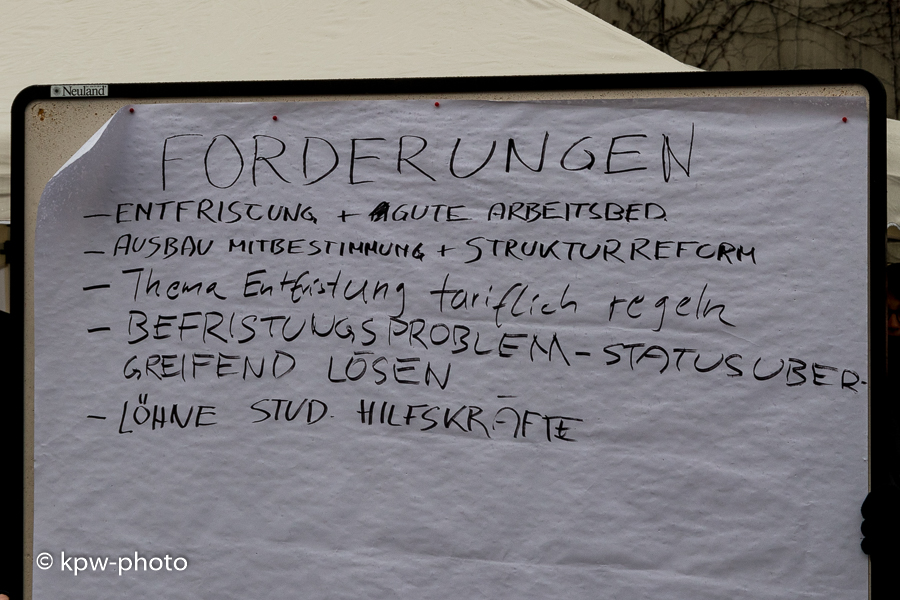 Neuland
FORDERUNGEN
– ENTFRISTUNG + GUTE ARBEITSBED.
– AUSBAU MITBESTIMMUNG + STRUKTURREFORM
– Thema Entfristung tariflich regeln
– BEFRISTUNGSPROBLEM – STATUSÜBER-
GREIFEND LÖSEN
– LÖHNE STUD. HILFSKRÄFTE
© kpw-photo